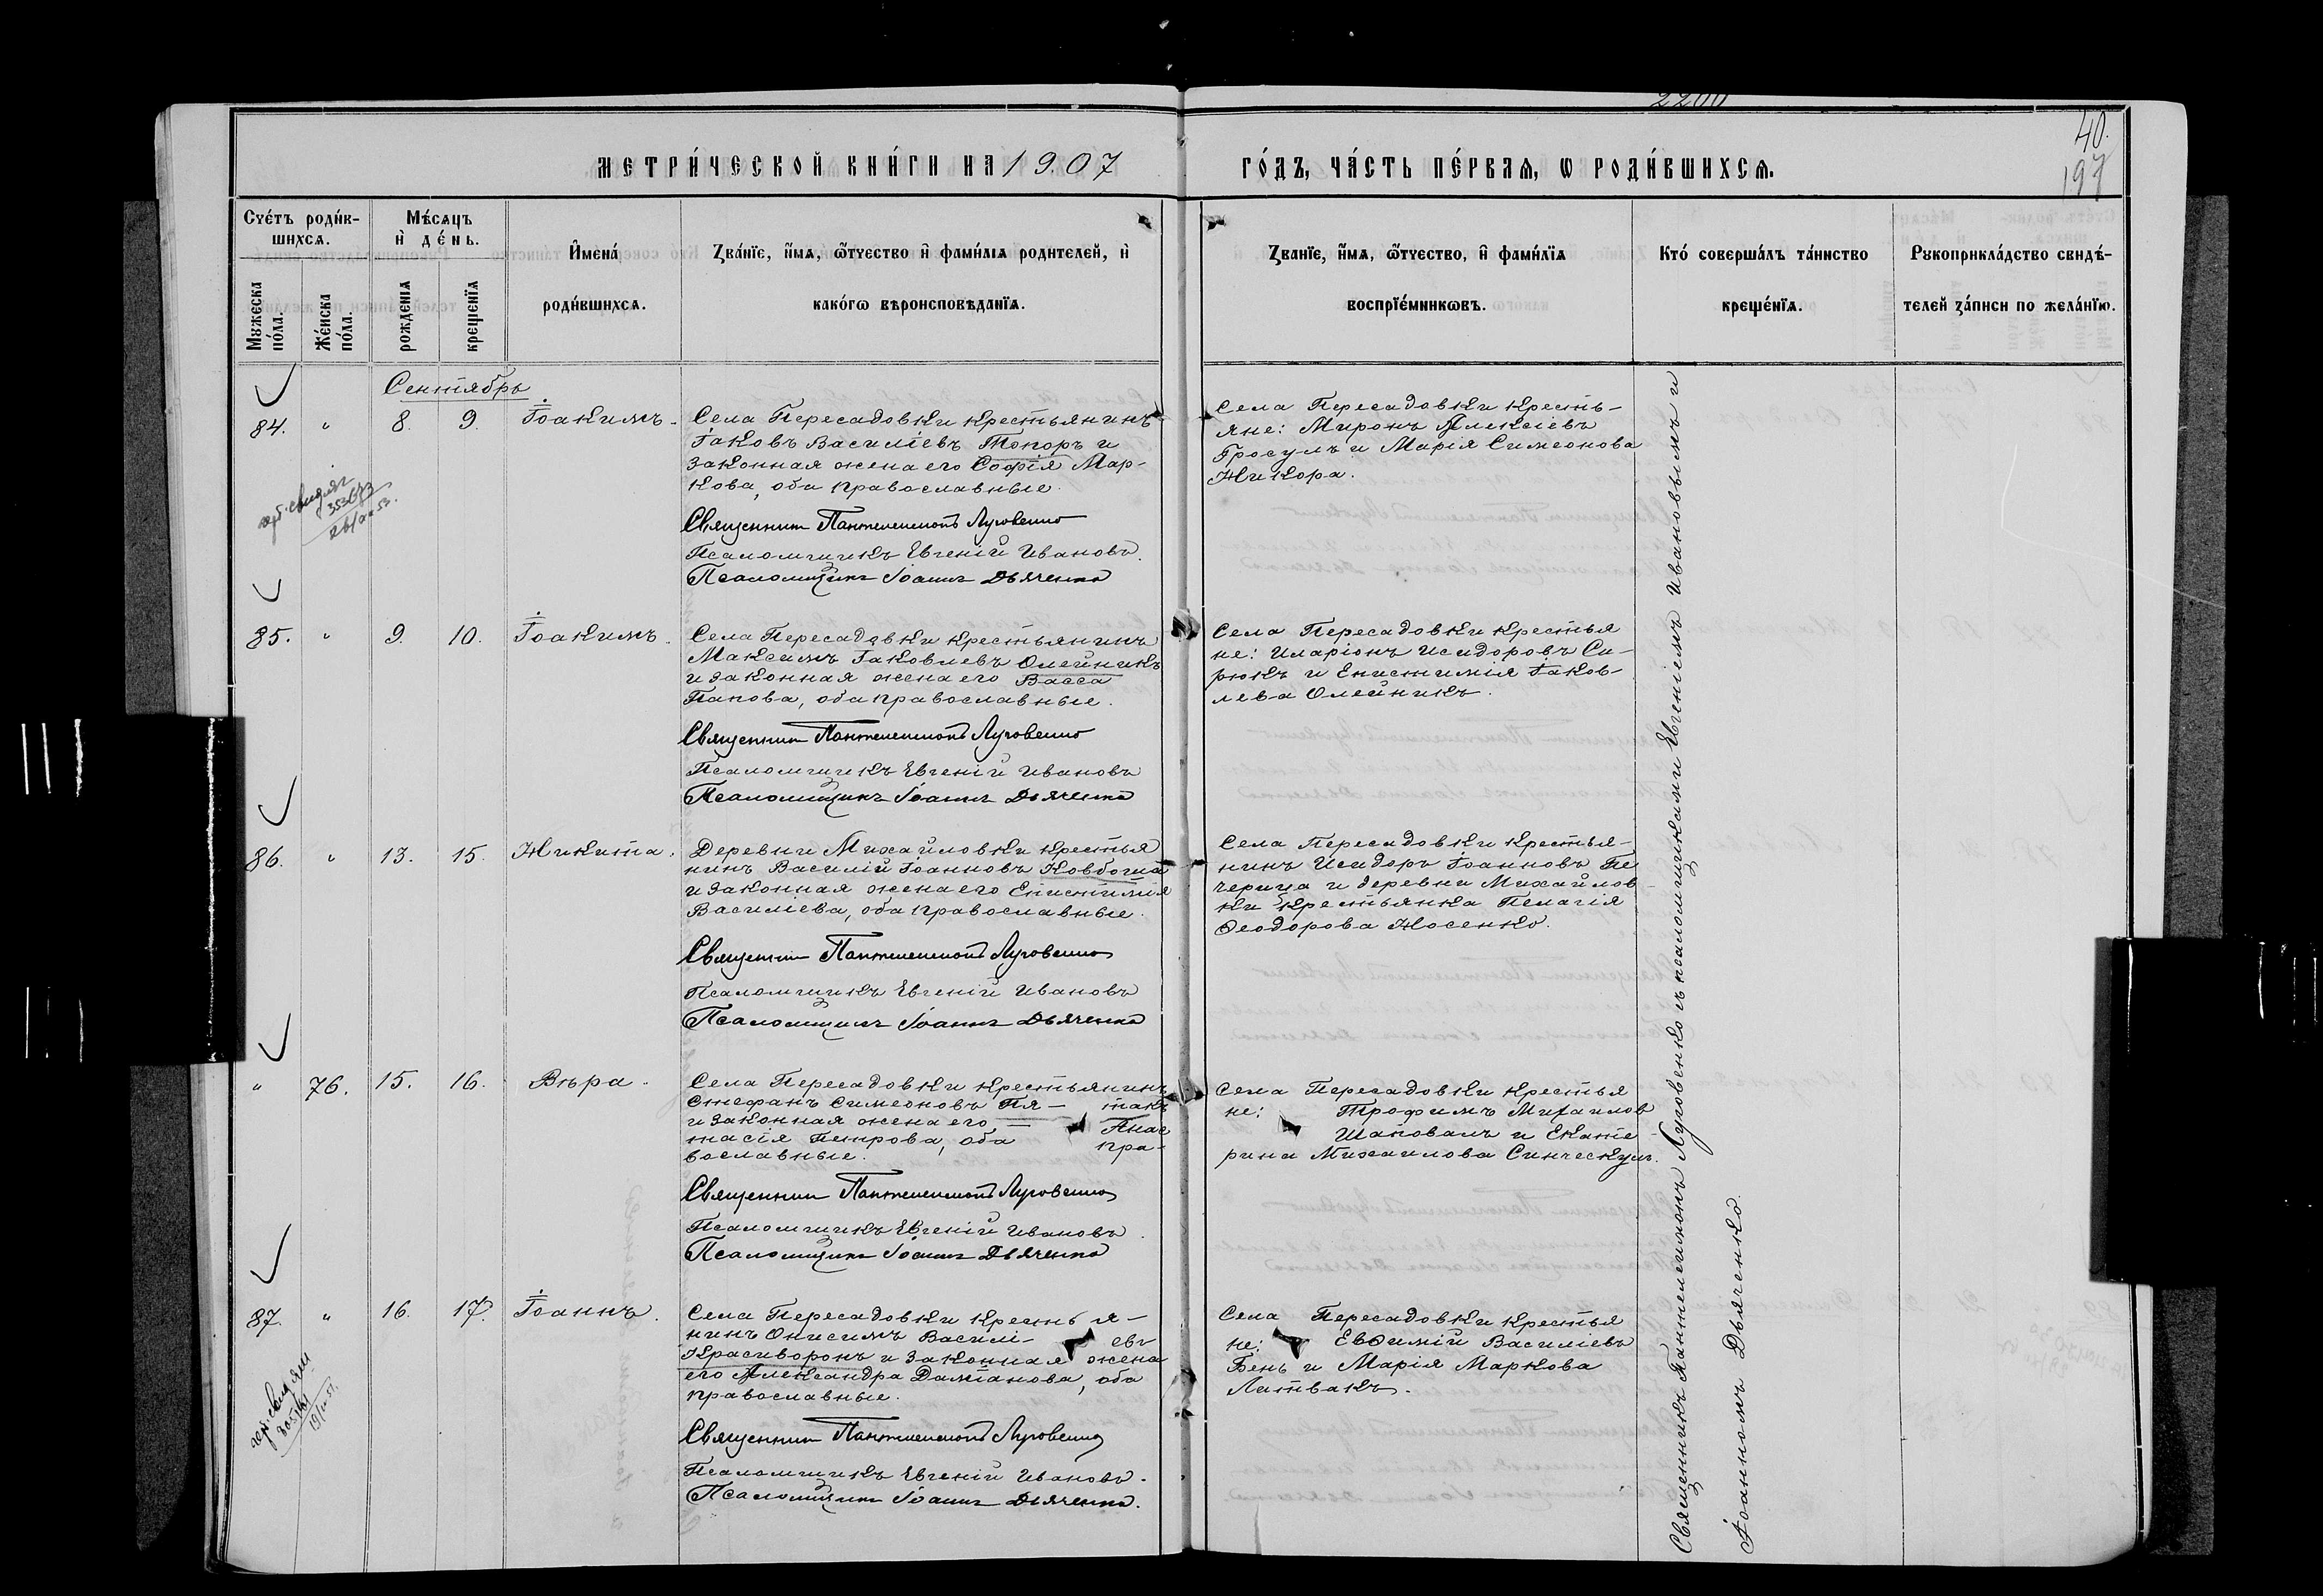 2200
40.
197
МЕТРИ́ЧЕСКОЙ КНИ́ГИ НА 1907 ГО́ДЪ, ЧА́СТЬ ПЕ́РВАѦ, Ѡ РОДИ́ВШИХСѦ.
Счéтъ роди́в-
шихсѧ.
Мужеска по́ла.
Же́нска по́ла.
Мѣ́сѧцъ
и де́нь.
рожденіѧ
крещеніѧ
Имена́
роди́вшихсѧ.
Зва́нїе, имѧ, ѻтчество и фамилїѧ родителей, и
како́гѡ вѣроисповѣданїѧ.
Званїе, имѧ, ѻтчество, и фами́лїѧ
воспрїе́мниковъ.
Кто́ соверша́лъ та́инство
креще́нїѧ.
Рукоприкла́дство свидѣ-
телей за́писи по жела́нїю.
Сентябрь
84. " 8. 9. Іоакимъ.
Села Пересадовки крестьянинъ
Іаковъ Василіевъ Топоръ и
законная жена его Софія Мар-
кова, оба православные.
Священник Пантелеимонъ Луговенко
Псаломщикъ Евгеній Ивановъ.
Псаломщикъ Іоаннъ Дьяченко
Села Пересадовки кресть-
яне: Миронъ Алексіевъ
Гросулъ и Марія Симеонова
Никора.
85. " 9. 10. Іоакимъ.
Села Пересадовки крестьянинъ
Максимъ Іаковлевъ Олейникъ
и законная жена его Васса
Папова, оба православные.
Священник Пантелеимонъ Луговенко
Псаломщикъ Евгеній Ивановъ
Псаломщикъ Іоаннъ Дьяченко
Села Пересадовки крестья
не: Иларіонъ Исидоровъ Си-
рюкъ и Епистимія Іаков-
лева Олейникъ.
86. " 13. 15. Никита.
Деревни Михайловки крестья
нинъ Василій Іоанновъ Ковбоша
и законная жена его Епистимія
Василіева, оба православные.
Священник Пантелеимонъ Луговенко
Псаломщикъ Евгеній Ивановъ
Псаломщикъ Іоаннъ Дьяченко
Села Пересадовки крестья-
нинъ Исидоръ Іоанновъ Пе
черица и деревни Михайлов-
ки крестьянка Пелагія
Ѳеодорова Носенко.
" 76. 15. 16. Вѣра.
Села Пересадовки крестьянинъ
Стефанъ Симеоновъ Пя- такъ
и законная жена его - Анас
тасія Петрова, оба пра-
вославные.
Священник Пантелеимонъ Луговенко
Псаломщикъ Евгеній Ивановъ.
Псаломщикъ Іоаннъ Дьяченко
Села Пересадовки крестья
не: Трофимъ Михаилов
Шаповалъ и Екате
рина Михаилова
87. " 16. 17. Іоаннъ.
Села Пересадовки кресть я-
нинъ Онисимъ Василі- евъ
Красиворонъ и законная жена
его Александра Даміанова, оба
православные.
Священник Пантелеимонъ Луговенко
Псаломщикъ Евгеній Ивановъ.
Псаломщикъ Іоаннъ Дьяченко.
Села Пересадовки крестья
не: Евѳимій Василіевъ
Бень и Марія Маркова
Литвакъ.
Священникъ Пантелеимонъ Луговенко съ псаломщиками Евгеніемъ Ивановымъ и
Іоанномъ Дьяченко.